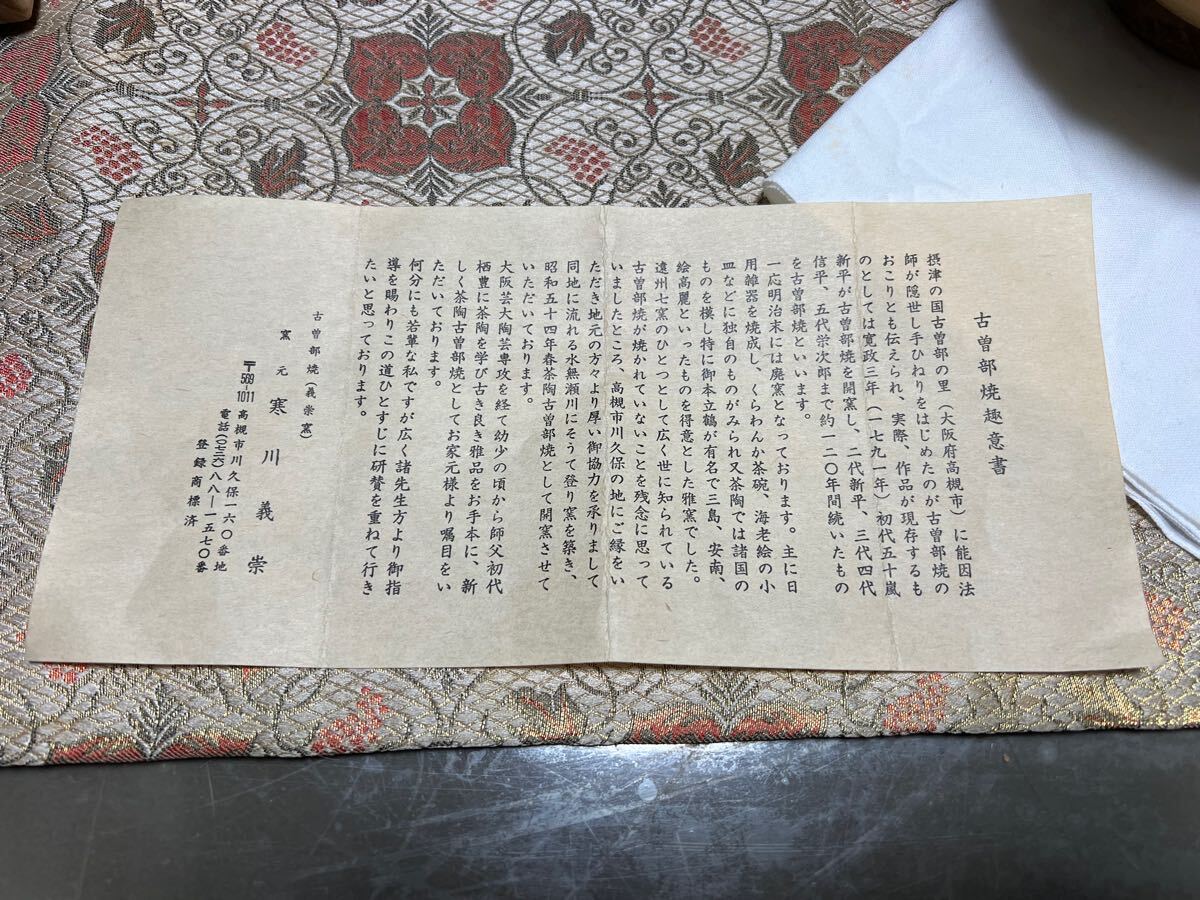 古曽部焼趣意書
摂津の国古曽部の里（大阪府高槻市）に能因法
師が隠世し手ひねりをはじめたのが古曽部焼の
おこりとも伝えられ、実際、作品が現存するも
のとしては寛政三年（一七九一年）初代五十嵐
新平が古曽部焼を開窯し、二代新平、三代四代
信平、五代栄次郎まで約一二〇年間続いたもの
を古曽部焼といいます。
一応明治末には廃窯となっております。主に日
用雑器を焼成し、くらわんか茶碗、海老絵の小
皿などに独自のものがみられ又茶陶では諸国の
ものを模し特に御本立鶴が有名で三島、安南、
絵高麗といったものを得意とした雅窯でした。
遠州七窯のひとつとして広く世に知られている
古曽部焼が焼かれていないことを残念に思って
いましたところ、高槻市川久保の地にご縁をい
ただき地元の方々より厚い御協力を承りまして
同地に流れる水無瀬川にそうて登り窯を築き、
昭和五十四年春茶陶古曽部焼として開窯させて
いただいております。
大阪芸大陶芸専攻を経て幼少の頃から師父初代
栖豊に茶陶を学び古き良き雅品をお手本に、新
しく茶陶古曽部焼としてお家元様より嘱目をい
ただいております。
何分にも若輩な私ですが広く諸先生方より御指
導を賜わりこの道ひとすじに研賛を重ねて行き
たいと思っております。
古曽部焼（義崇窯）
窯元 寒川義崇
〒569-1011 高槻市川久保一六〇番地
電話(〇七二六)八八—一五七〇番
登録商標済